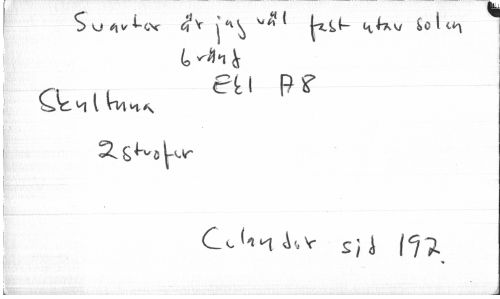 Svarter är jag väl fast utav solen
bränd
Ek1 A8
Skultuna
2 strofer
Celander sid 192.